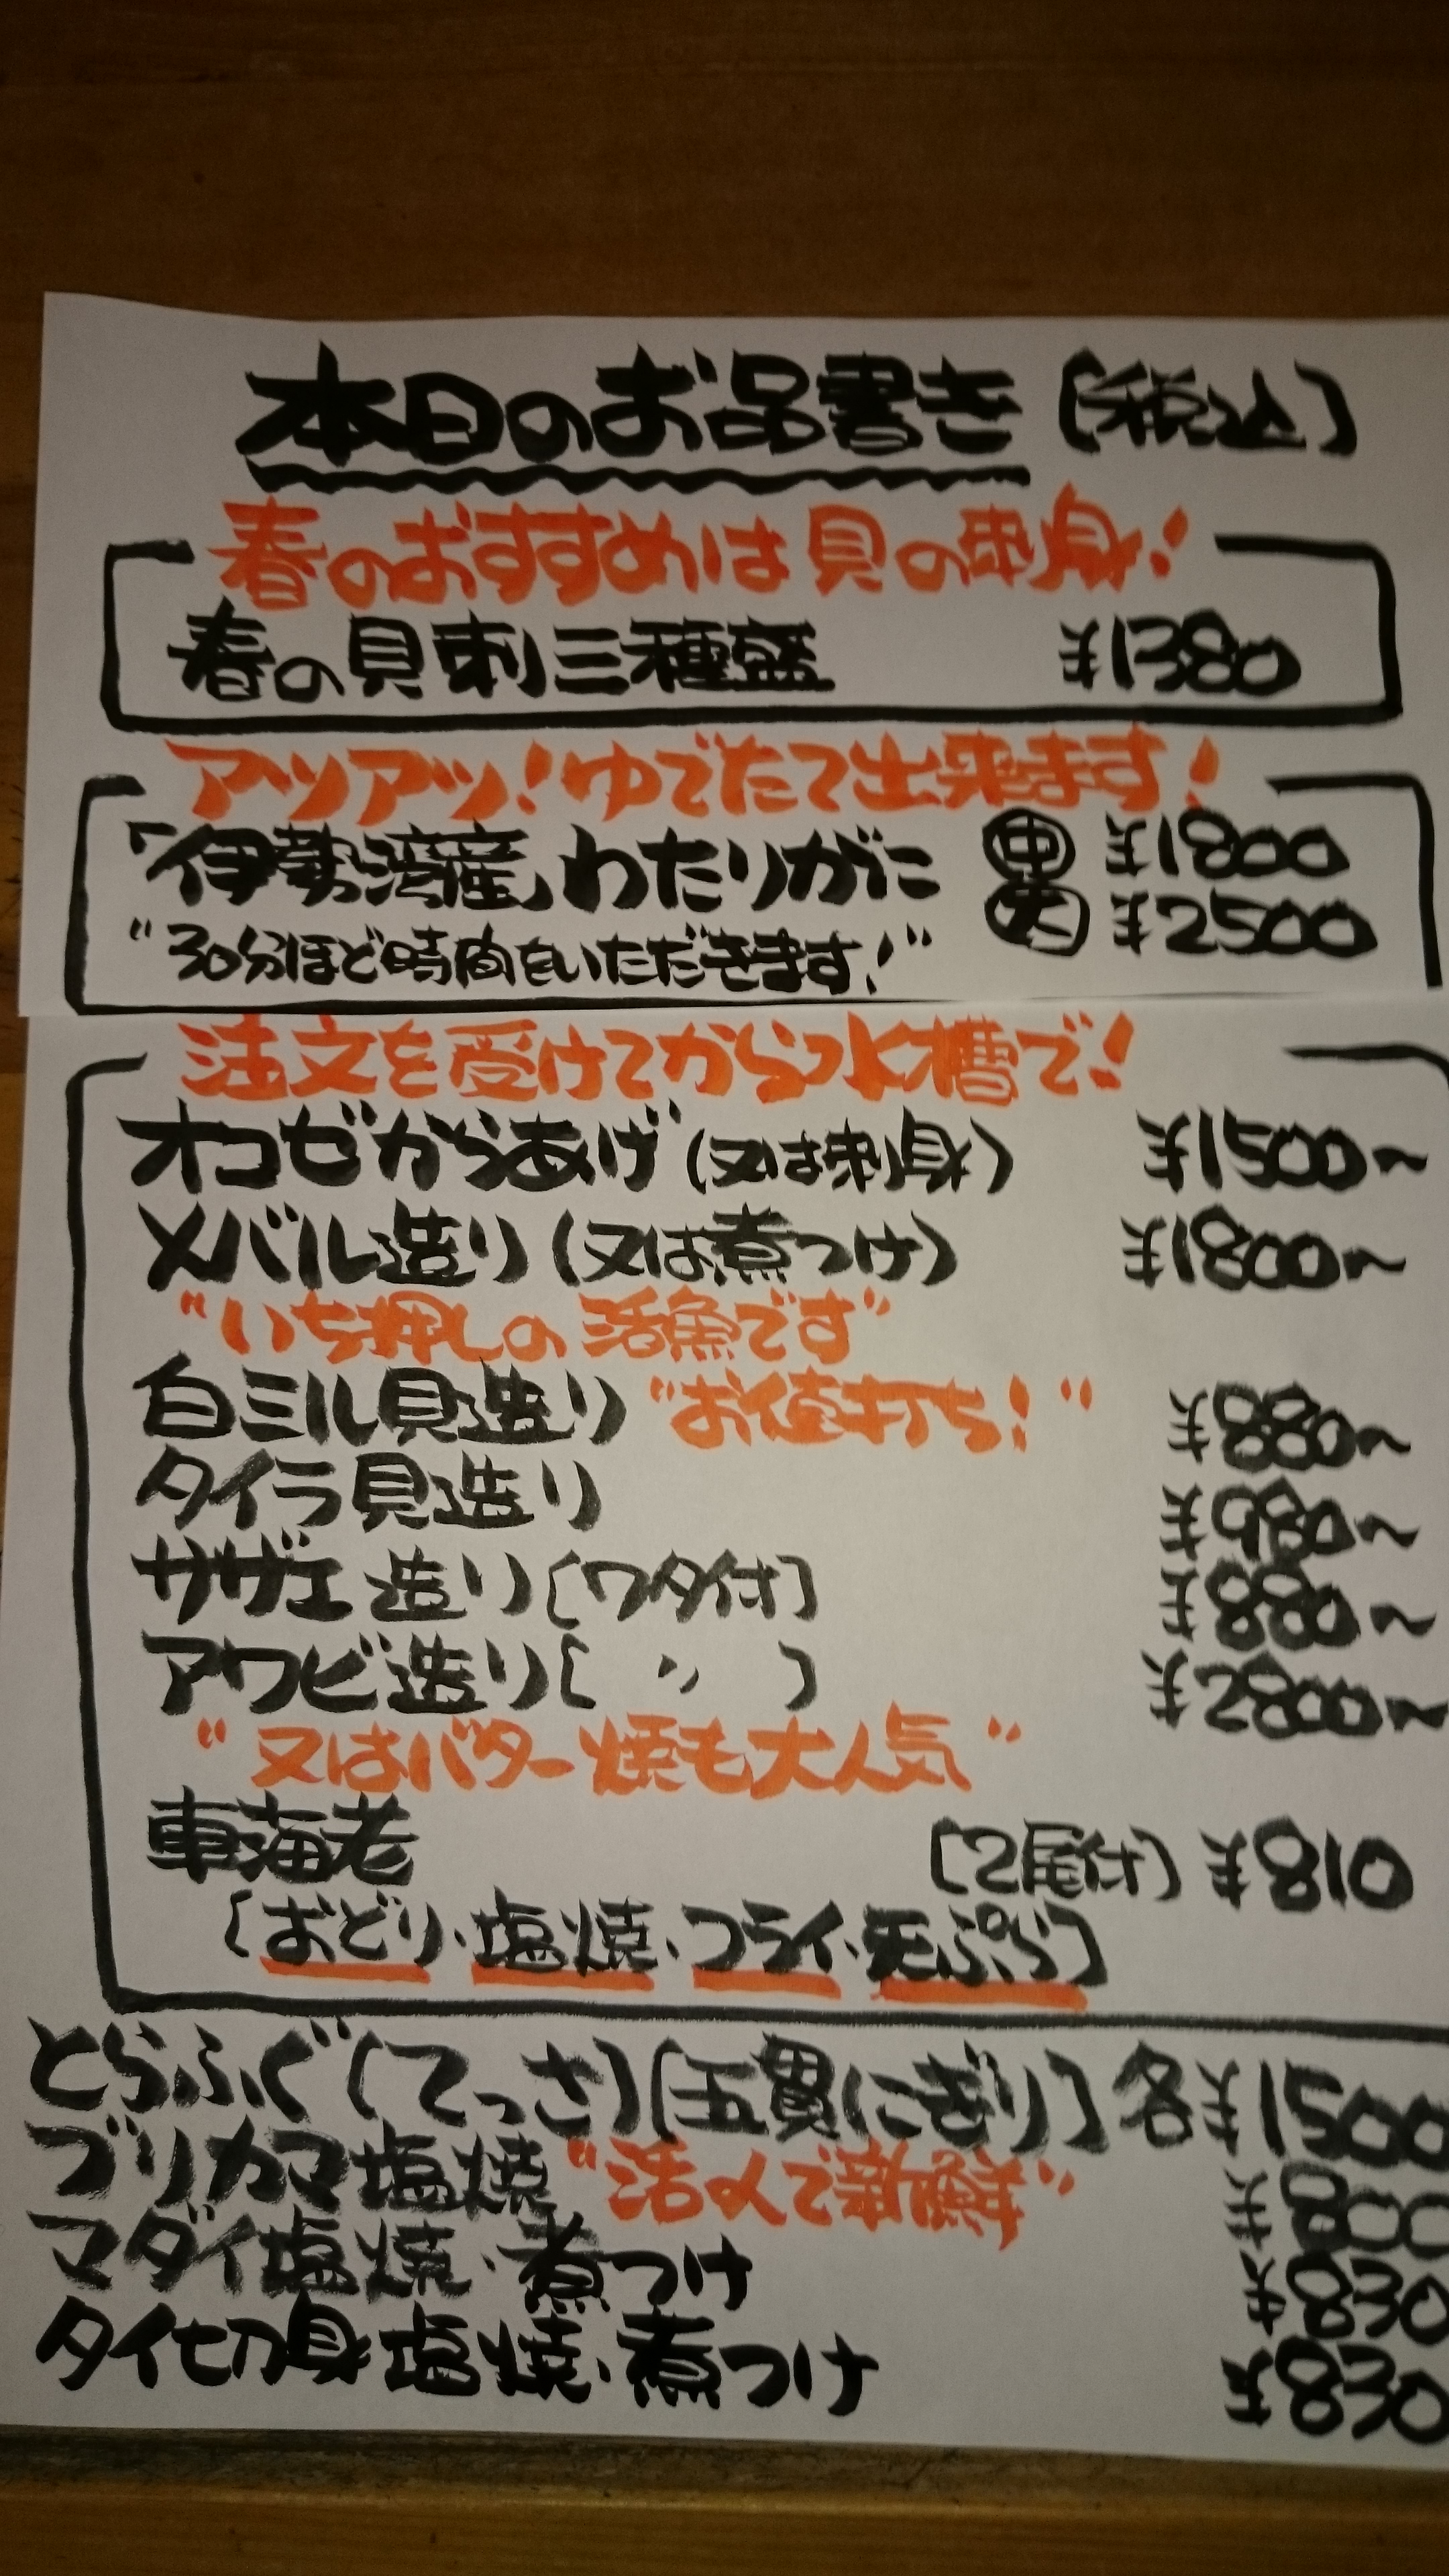 本日のお品書き [＋税]
春のおすすめは貝の刺身!
春の貝刺三種盛 ¥1380
アツアツ!ゆでたて出来ます!
「伊勢湾産」わたりがに ㊥ ¥1800
㊛ ¥2500
"30分ほど時間をいただきます!"
注文を受けてから水槽で!
オコゼからあげ(又は刺身) ¥1500～
メバル造り(又は煮つけ) ¥1800～
"いち押しの活魚です"
白ミル貝造り "お値打ち!" ¥880～
タイラ貝造り ¥980～
サザエ造り[ワタ付] ¥880～
アワビ造り[〃] ¥2800～
"又はバター焼も大人気"
車海老 [2尾付] ¥810
[おどり・塩焼・フライ・天ぷら]
とらふぐ[てっさ][五貫にぎり]各¥1500
ブリカマ塩焼 "活〆で新鮮"
マダイ塩焼・煮つけ
タイ切身塩焼・煮つけ